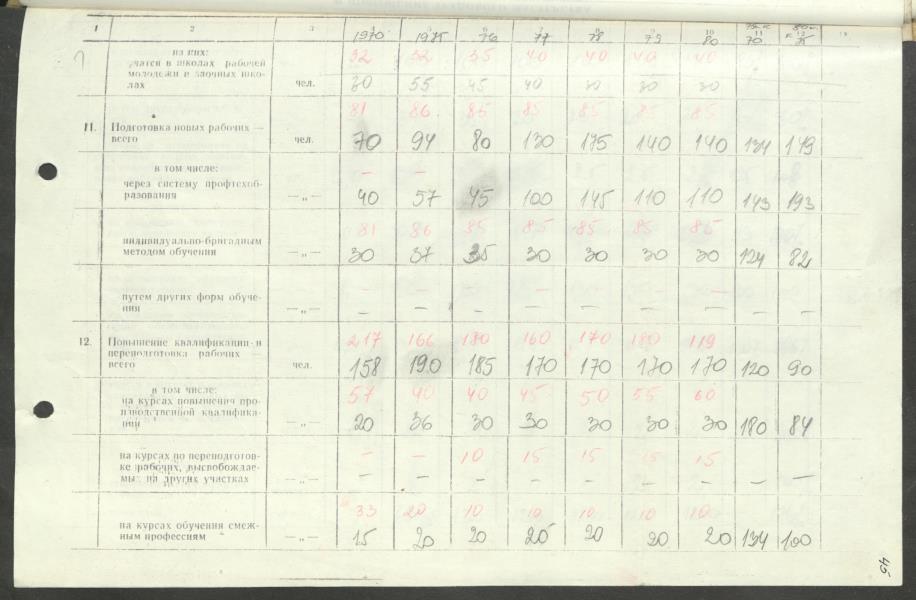 1 2 3 1970 1975 76 77 78 79 80 70 75
из них:
учатся в школах рабочей
молодежи и заочных шко-
лах
чел.
32 32 35 40 40 40 40
30 55 45 40 30 30 30
81 86 85 85 85 85 85
11. Подготовка новых рабочих —
всего
чел. 70 94 80 130 175 140 140 134 149
в том числе:
через систему профтехоб-
разования
— —
—„— 40 57 45 100 145 110 110 143 193
81 86 85 85 85 85 85
индивидуально-бригадным
методом обучения
—„— 30 37 35 30 30 30 30 124 82
путем других форм обуче-
ния
—„— — — — — — — —
217 166 180 160 170 180 119
12. Повышение квалификации и
переподготовка рабочих —
всего
чел. 158 190 185 170 170 170 170 120 90
в том числе:
на курсах повышения про-
изводственной квалифика-
ции
57 40 40 45 50 55 60
—„— 20 36 30 30 30 30 30 180 84
на курсах по переподготов-
ке рабочих, высвобождае-
мых на других участках
— — 10 15 15 15 15
—„— — — — — — — — — —
33 20 10 10 10 10 10
на курсах обучения смеж-
ным профессиям
—„— 15 20 20 20 20 20 134 100
45